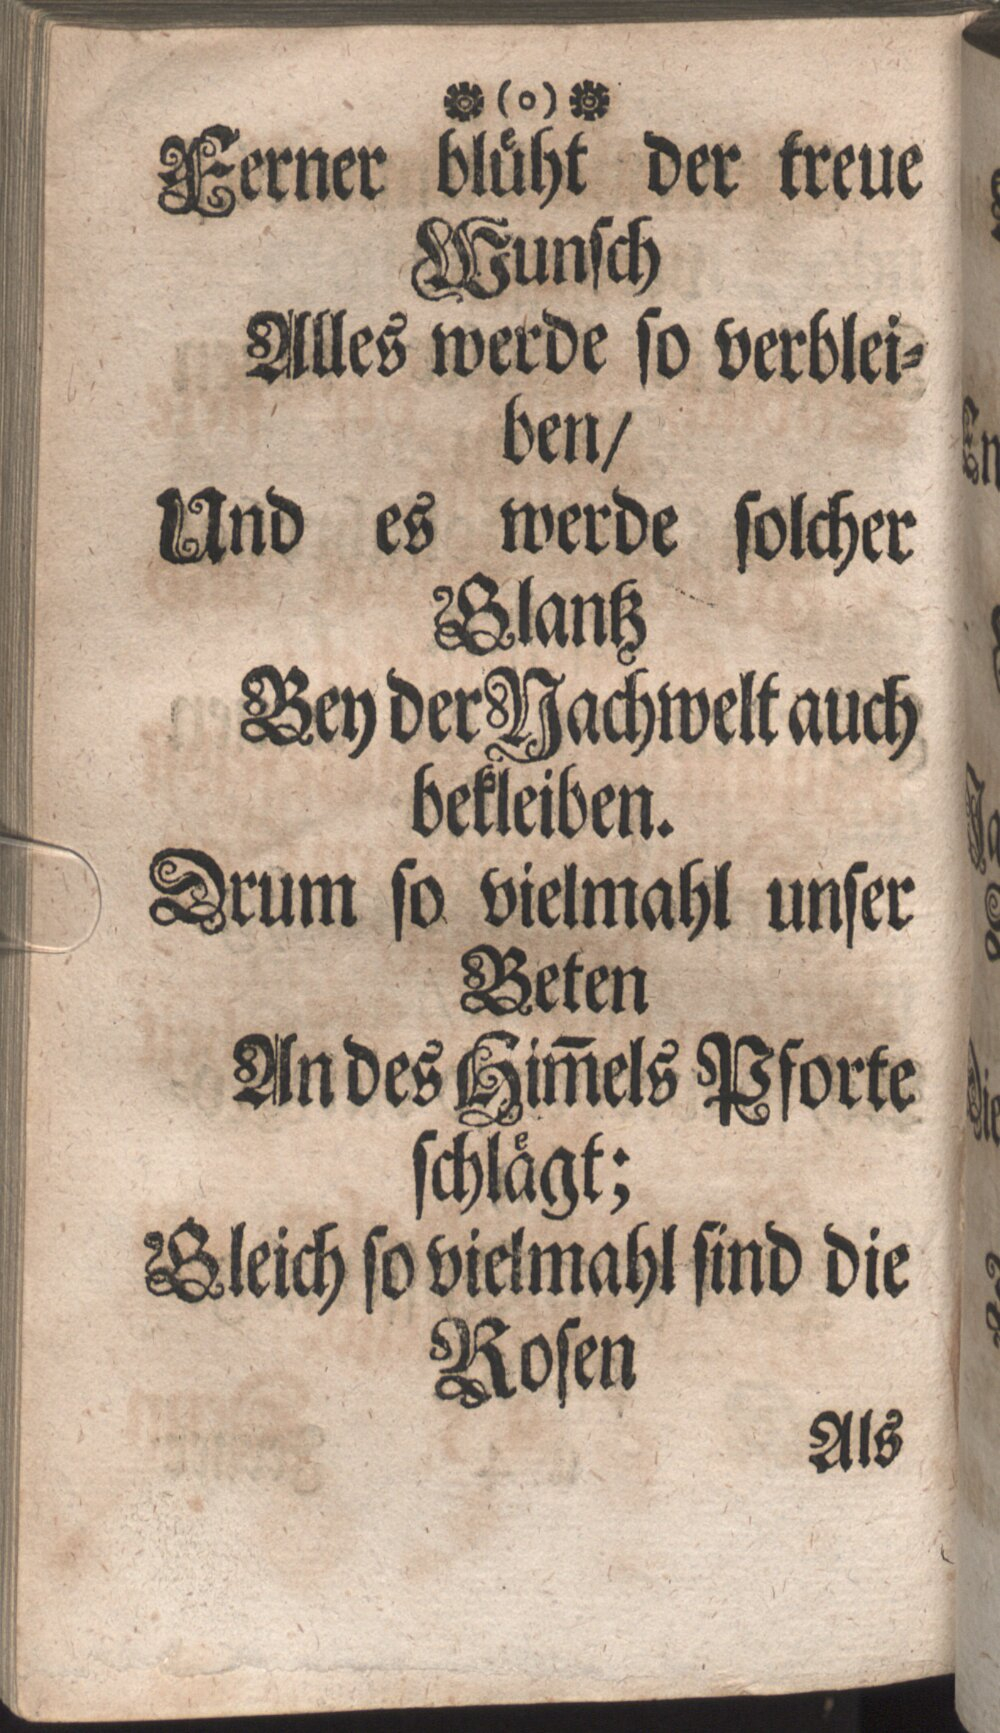 ❁(o)❁
Ferner bluͤht der treue
Wunſch
Alles werde ſo verblei⸗
ben/
Und es werde ſolcher
Glantz
Bey der Nachwelt auch
bekleiben.
Drum ſo vielmahl unſer
Beten
An des Him̄els Pforte
ſchlaͤgt;
Gleich ſo vielmahl ſind die
Roſen
Als